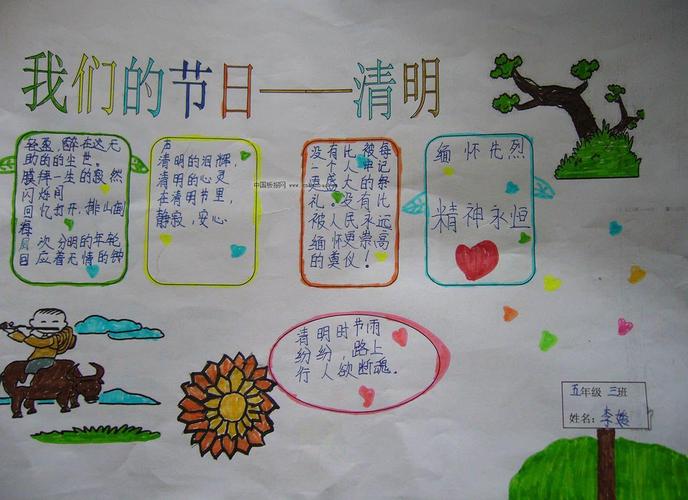 我们的节日——清明
轻盈,醉在这无
助的的尘世。
膜拜一生的寂然
闪烁间
回忆打开,排山倒
海
次分明的年轮
应着无情的钟
声
清明的泪挥
清明的心灵
在清明节里,
静寂,安心
中国板报网
没有比被每
一个人牢记
更盛大的祭
礼。没有比
被人民永远
缅怀更崇高
的奠仪!
缅怀先烈
精神永恒
清明时节雨
纷纷,路上
行人欲断魂。
五年级 三班
姓名: 李